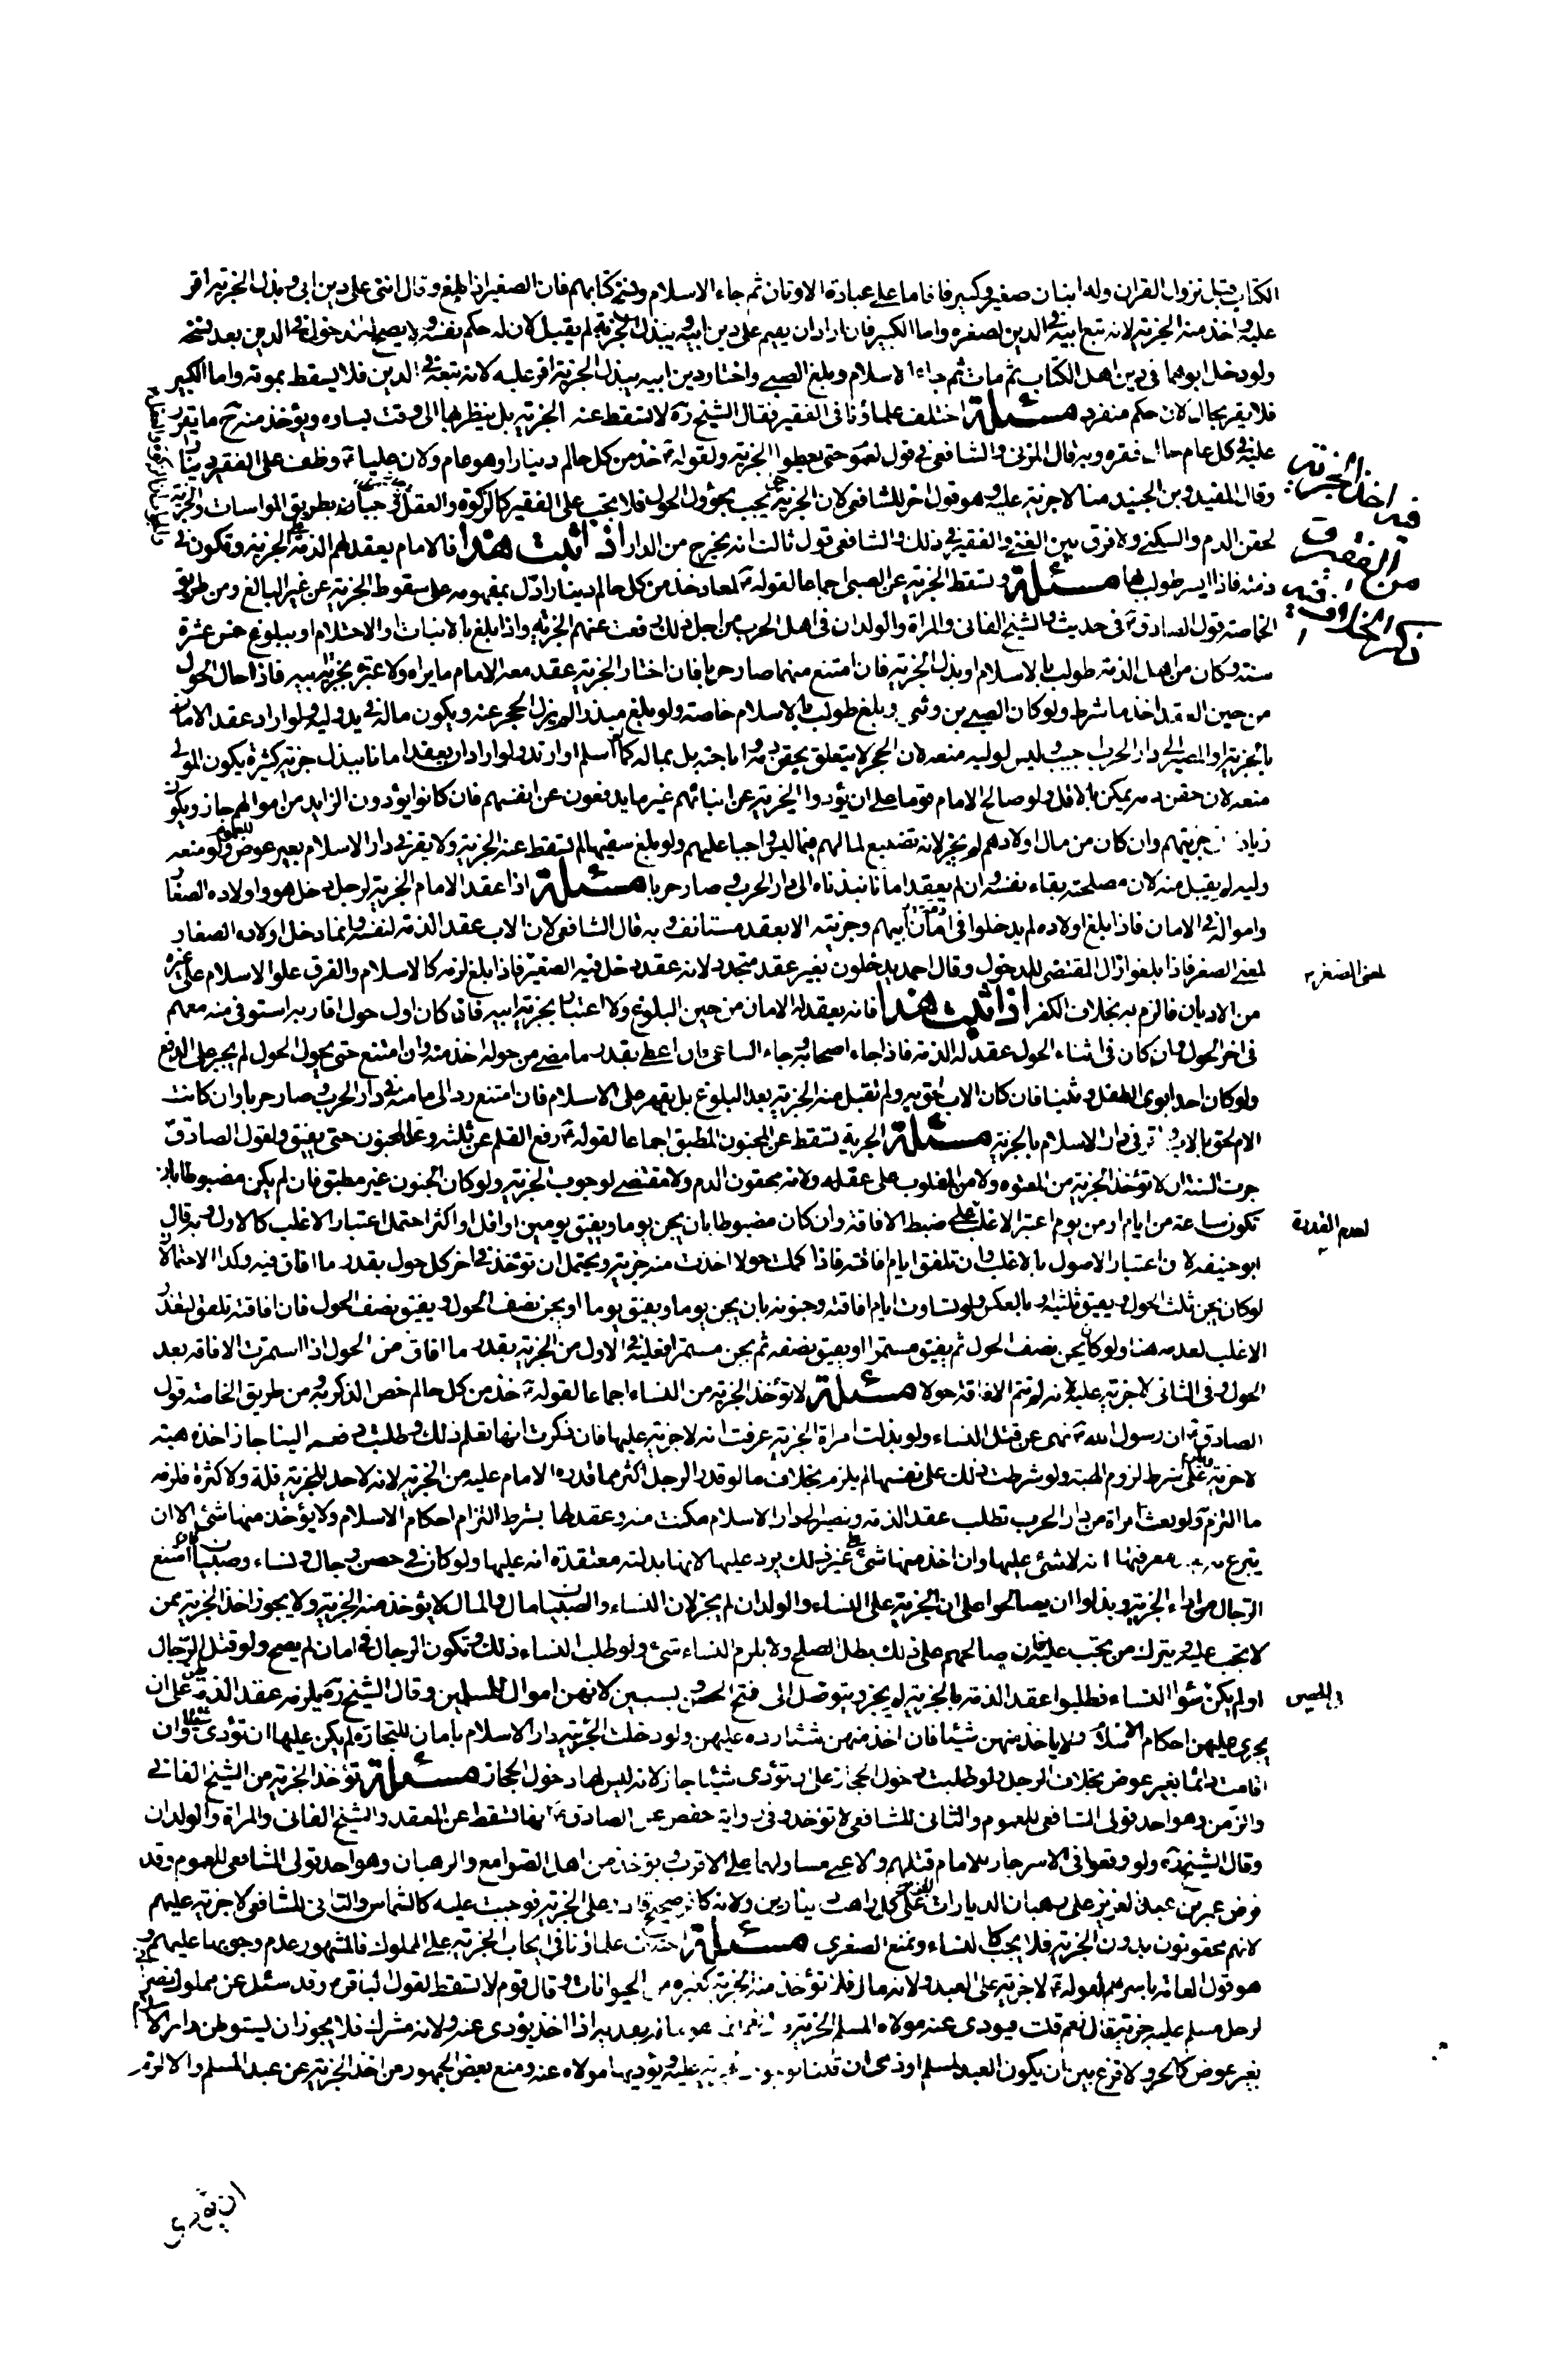 الكتاب قبل نزول القران وله ابنان صغير وكبير فاقاما على عبادة الاوثان ثم جاء الاسلام ونسخ كتابهم فان الصغير اذا بلغ وقال اننى على دين ابى وبذل الجزية اقر
عليه واخذ منه الجزية لانه تبع ابيه فى الدين لصغره واما الكبير فان اراد ان يقيم على دين ابيه ويبذل الجزية لم يقبل لان له حكم نفسه ولا يصح له دخوله فى الدين بعد نسخه
ولو دخل ابوهما فى دين اهل الكتاب ثم مات ثم جاء الاسلام وبلغ الصبى واختار دين ابيه ببذل الجزية اقر عليه لانه تبعه فى الدين فلا يسقط بموته واما الكبير
فلا يقر بحال لان حكم منفرد مسئلة اختلف علماؤنا فى الفقير فقال الشيخ ره لا تسقط عنه الجزية بل ينظر بها الى وقت يساره ويؤخذ منه ح ما يقرر
عليه فى كل عام حال فقره وبه قال المزنى والشافعى فى قول لعموم حتى يعطوا الجزية ولقوله خذ من كل حالم دينارا وهو عام ولان عليا وظف على الفقير دينارا
وقال المفيد وبن الجنيد منا لا جزية عليه وهو قول اخر للشافعى لان الجزية حق يجب بحؤول الحول فلا يجب على الفقير كالزكوة والعقل بطريق المواسات والجزية
لحقن الدم والسكنى ولا فرق بين الغنى والفقير فى ذلك وللشافعى قول ثالث انه يخرج من الدار اذا ثبت هذا فالامام يعقد لهم الذمة الجزية وتكون فى
ذمته فاذا ايسر طولب بها مسئلة وتسقط الجزية عن الصبى اجماعا لقوله لمعاذ خذ من كل حالم دينارا دل بمفهومه على سقوط الجزية عن غير البالغ ومن طريق
الخاصة قول الصادق فى حديث والشيخ الفانى والمراة والولدان فى اهل الحرب من اجل ذلك رفعت عنهم الجزية واذا بلغ بالانبات او الاحتلام او ببلوغ خمس عشرة
سنة وكان من اهل الذمة طولب بالاسلام او بذل الجزية فان امتنع منهما صار حربا فان اختار الجزية عقد معه الامام ما يراه ولا عبرة بجزية ابيه فاذا حال الحول
من حين العقد اخذ ما شرط ولو كان الصبى بن وثنى وبلغ طولب بالاسلام خاصة ولو بلغ مبذرا لم يزل الحجر عنه ويكون ماله فى يد وليه ولو اراد عقد الامان
بالجزية او المصير الى دار الحرب جيب وليس لوليه منعه لان الحجر لا يتعلق بحقن دمه واباحته بل بماله كما اسلم او ارتد ولو اراد ان يعقد امانا ببذل جزية كثيرة يكون للولى
منعه لان حقن دمه يمكن بالاقل ولو صالح الامام قوما على ان يؤدوا الجزية عن ابنائهم غير ما يدفعون عن انفسهم فان كانوا يؤدون الزايد من اموالهم جاز ويكون
جزيتهم وان كان من مال اولادهم لم يجز لانه تضييع لمالهم فيما ليس واجبا عليهم ولو بلغ سفيها لم تسقط عنه الجزية ولا يقر فى دار الاسلام بغير عوض ولو منعه
وليه لم يقبل منه لان مصلحته بقاء نفسه وان لم يعقد امانا نبذناه الى دار الحرب وصار حربا مسئلة اذا عقد الامام الجزية لرجل دخل هو واولاده الصغار
وامواله فى الامان فاذا بلغ اولاده لم يدخلوا فى امان ابيهم وجزيته الا بعقد مستانف وبه قال الشافعى لان الاب عقد الذمة لنفسه وانما دخل اولاده الصغار
لمعنى الصغر فاذا بلغوا زال المقتضى للدخول وقال احمد يدخلون بغير عقد متجدد لانه عقد دخل فيه الصغير فاذا بلغ لزمه كالاسلام والفرق علو الاسلام على غيره
من الاديان فالزم به بخلاف الكفر اذا ثبت هذا فانه يعقد له الامان من حين البلوغ ولا اعتبار بجزية ابيه فاذا كان اول حول اقاربه استوفى منه معهم
فى اخر الحول وان كان فى اثناء الحول عقد له الذمة فاذا جاء اصحابه وجاء الساعى فان اعطى بقدر ما مضى من حوله اخذ منه وان امتنع حتى يحول الحول لم يجبر على الدفع
ولو كان احد ابوى الطفل وثنيا فان كان الاب لحق به ولم تقبل منه الجزية بعد البلوغ بل يقهر على الاسلام فان امتنع رد الى مامنه فى دار الحرب وصار حربا وان كانت
الام لحق بالاب فى دار الاسلام بالجزية مسئلة الجزية تسقط عن المجنون المطبق اجماعا لقوله رفع القلم عن ثلثة وعن المجنون حتى يفيق ولقول الصادق
جرت السنة ان لا تؤخذ الجزية من المعتوه ولا من المغلوب على عقله ولانه محقون الدم ولا مقتضى لوجوب الجزية ولو كان الجنون غير مطبق فان لم يكن مضبوطا بان
تكون ساعة من ايام او من يوم اعتبر الاغلب ضبط الافاقة وان كان مضبوطا بان يجن يوما ويفيق يومين او اقل او اكثر احتمل اعتبار الاغلب كالاول وبه قال
ابو حنيفة لان اعتبار الاصول بالاغلب وان تلفق ايام افاقته فاذا كملت حولا اخذت منه جزية ويحتمل ان تؤخذ فى اخر كل حول بقدر ما افاق فيه وكذا الاحتمالان
لو كان يجن ثلث الحول ويفيق ثلثيه او بالعكس ولو تساوت ايام افاقته وجنونه بان يجن يوما ويفيق يوما او يجن نصف الحول ويفيق نصف الحول فان افاقته تلفق لتعذر
الاغلب لعدمه هنا ولو كان يجن نصف الحول ثم يفيق مستمرا او يفيق نصفه ثم يجن مستمرا فعليه فى الاول من الجزية بقدر ما افاق من الحول اذا استمرت الافاقة بعد
الحول وفى الثانى لا جزية عليه لانه لم تتم الافاقة حولا مسئلة لا تؤخذ الجزية من النساء اجماعا لقوله خذ من كل حالم خص الذكر به ومن طريق الخاصة قول
الصادق ان رسول الله نهى عن قتل النساء ولو بذلت امراة الجزية عرفت انه لا جزية عليها فان ذكرت انها تعلم ذلك وطلبت دفعه الينا جاز اخذه هبة
لا جزية على شرط لزوم الهبة ولو شرطت ذلك على نفسها لم يلزم بخلاف ما لو قدر الرجل اكثر مما قدره الامام عليه من الجزية لانه لا حد للجزية قلة ولا كثرة فلزمه
ما التزم ولو بعث امراة من دار الحرب تطلب عقد الذمة وتصير الى دار الاسلام مكنت منه وعقد لها بشرط التزام احكام الاسلام ولا يؤخذ منها شئ الا ان
معرفتها انه لا شئ عليها وان اخذ منها شئ غير ذلك يرد عليها لانها بذلته معتقدة انه عليها ولو كان فى حصن رجال ونساء وصبيان امتنع
الرجال من اداء الجزية وبذلوا ان يصالحوا على ان الجزية على النساء والولدان لم يجز لان النساء والصبيان مال والمال لا يؤخذ منه الجزية ولا يجوز اخذ الجزية ممن
لا تجب عليه ويترك من تجب عليه فان صالحهم على ذلك بطل الصلح ولا يلزم النساء شئ ولو طلب النساء ذلك وتكون الرجال فى امان لم يصح ولو قتل الرجال
او لم يكن سوا النساء فطلبوا عقد الذمة بالجزية لم يجز ويتوصل الى فتح الحصن ويسبين لانهن اموال للمسلمين وقال الشيخ ره يلزمه عقد الذمة على ان
يجرى عليهن احكام الاسلام ولا ياخذ منهن شيئا فان اخذ منهن شيئا رده عليهن ولو دخلت الحربية دار الاسلام بامان للتجارة لم يكن عليها ان تؤدى شيئا وان
اقامت دائما بغير عوض بخلاف الرجل ولو طلبت دخول الحجاز على ان تؤدى شيئا جاز لانه ليس لها دخول الحجاز مسئلة تؤخذ الجزية من الشيخ الفانى
والزمن وهو احد قولى الشافعى للعموم والثانى للشافعى لا تؤخذ وفى رواية حفص عن الصادق انها تسقط عن المقعد والشيخ الفانى والمراة والولدان
وقال الشيخ ره ولو وقعوا فى الاسر جاز للامام قتلهم ولا عمى مساو لهما على الاقرب ويؤخذ من اهل الصوامع والرهبان وهو احد قولى الشافعى للعموم وقد
فرض عمر بن عبد العزيز على رهبان الديارات على كل راهب دينارين ولانه كافر صحيح قادر على الجزية فوجبت عليه كالشماس والثانى للشافعى لا جزية عليهم
لانهم محقونون بدون الجزية فلا يجب كالنساء ونمنع الصغرى مسئلة اختلف علماؤنا فى ايجاب الجزية على المملوك فالمشهور عدم وجوبها عليهم وهو
هو قول العامة باسرهم لقوله لا جزية على العبد ولانه مال فلا تؤخذ منه الجزية كغيره من الحيوانات وقال قوم لا تسقط لقول الباقر وقد سئل عن مملوك نصرانى
لرجل مسلم عليه جزية قال نعم قلت فيودى عنه مولاه المسلم الجزية قال نعم انما هو ماله يفديه اذا اخذ يؤدى عنه ولانه مشرك فلا يجوز ان يستوطن دار الاسلام
بغير عوض كالحر ولا فرق بين ان يكون العبد لمسلم او ذمى ان قلنا بوجوب الجزية عليه ويؤديها مولاه عنه ومنع بعض الجمهور من اخذ الجزية عن عبد المسلم والا لزم
فيه اخذ الجزية
من الفقير
ذكر الخلاف فيه
لمعنى الصغر
لعدم القدرة
ان تؤدى